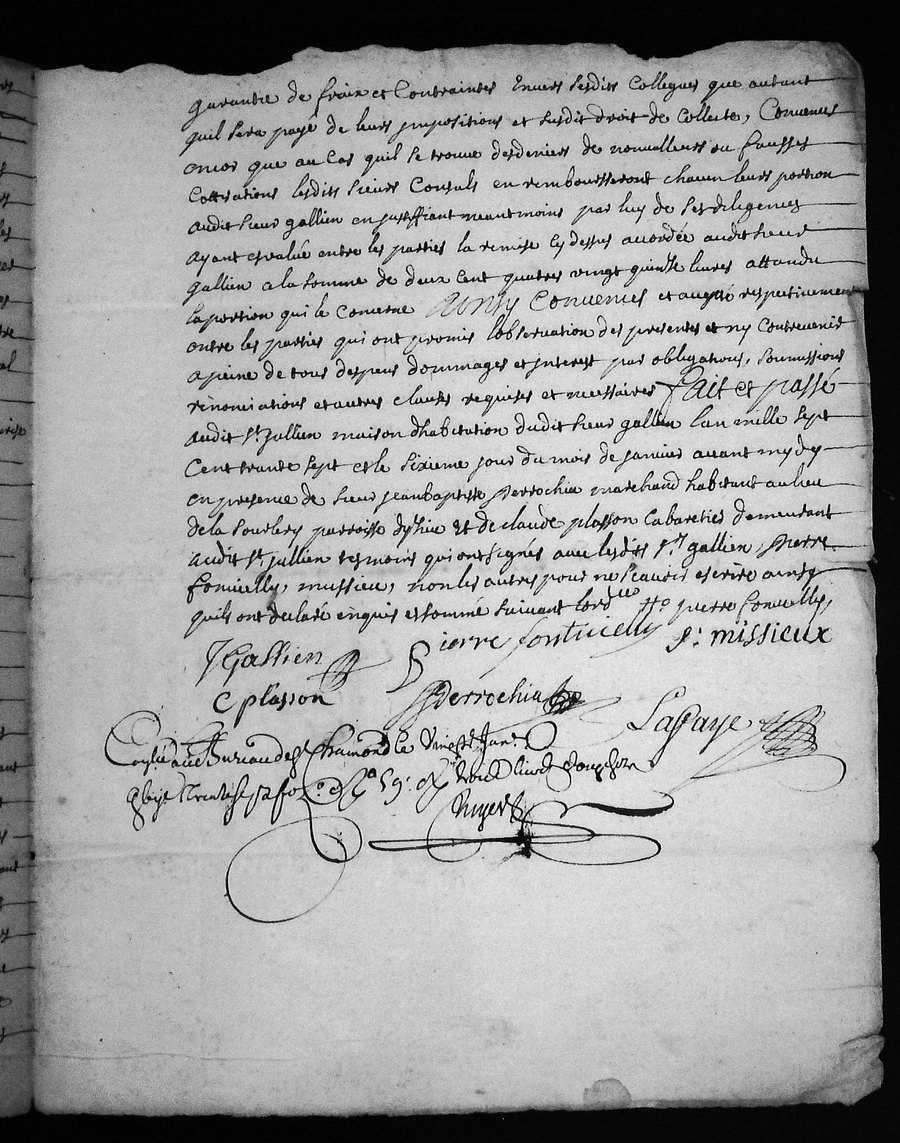 garantie de fraix et Contraintes Envers sesdits Collegues que autant
quil sera payé de leurs impositions et susdit droit de Collecte, Convenus
encor que au Cas quil se trouve des deniers de nonvalleurs ou fausses
Cottisations lesdits sieurs Consuls en rembourseront chacun leurs portion
audit sieur gallien en justiffiant neantmoins par luy de ses diligences
ayant esvalué entre les parties la remise cy dessus accordée audit sieur
gallien a la somme de deux cent quatres vingt quinze livres attandu
la portion qui le Concerne Ainsy Convenus et accepté respectivement
entre les parties qui ont promis l'observation des presentes et ny Contrevenir
a peine de tous despens dommages et jnterest par obligations, soumissions
renonciations et autres clauses requises et necessaires fait et passé
audit st. jullien maison d'habitation dudit sieur gallien lan mille sept
Cent trante sept et le sixieme jour du mois de janvier avant mydy
en presence de sieur jean baptiste perrochia marchand habitant au lieu
de la parroisse dyzieu et de claude plasson Cabaretier demeurant
audit st. jullien tesmoins qui ont signés avec lesdits sr. gallien, pierre
fontvielly, missieu, non les autres pour ne scavoir escrire ainsy
quils ont declaré enquis et sommé suivant lord.ce pierre fonvielly,
JGallien Pierre fontvielly S: missieux
C plasson Perrochia
Lafaye
Conlle au Bureau de St Chamond le Vingt Janv.
livres